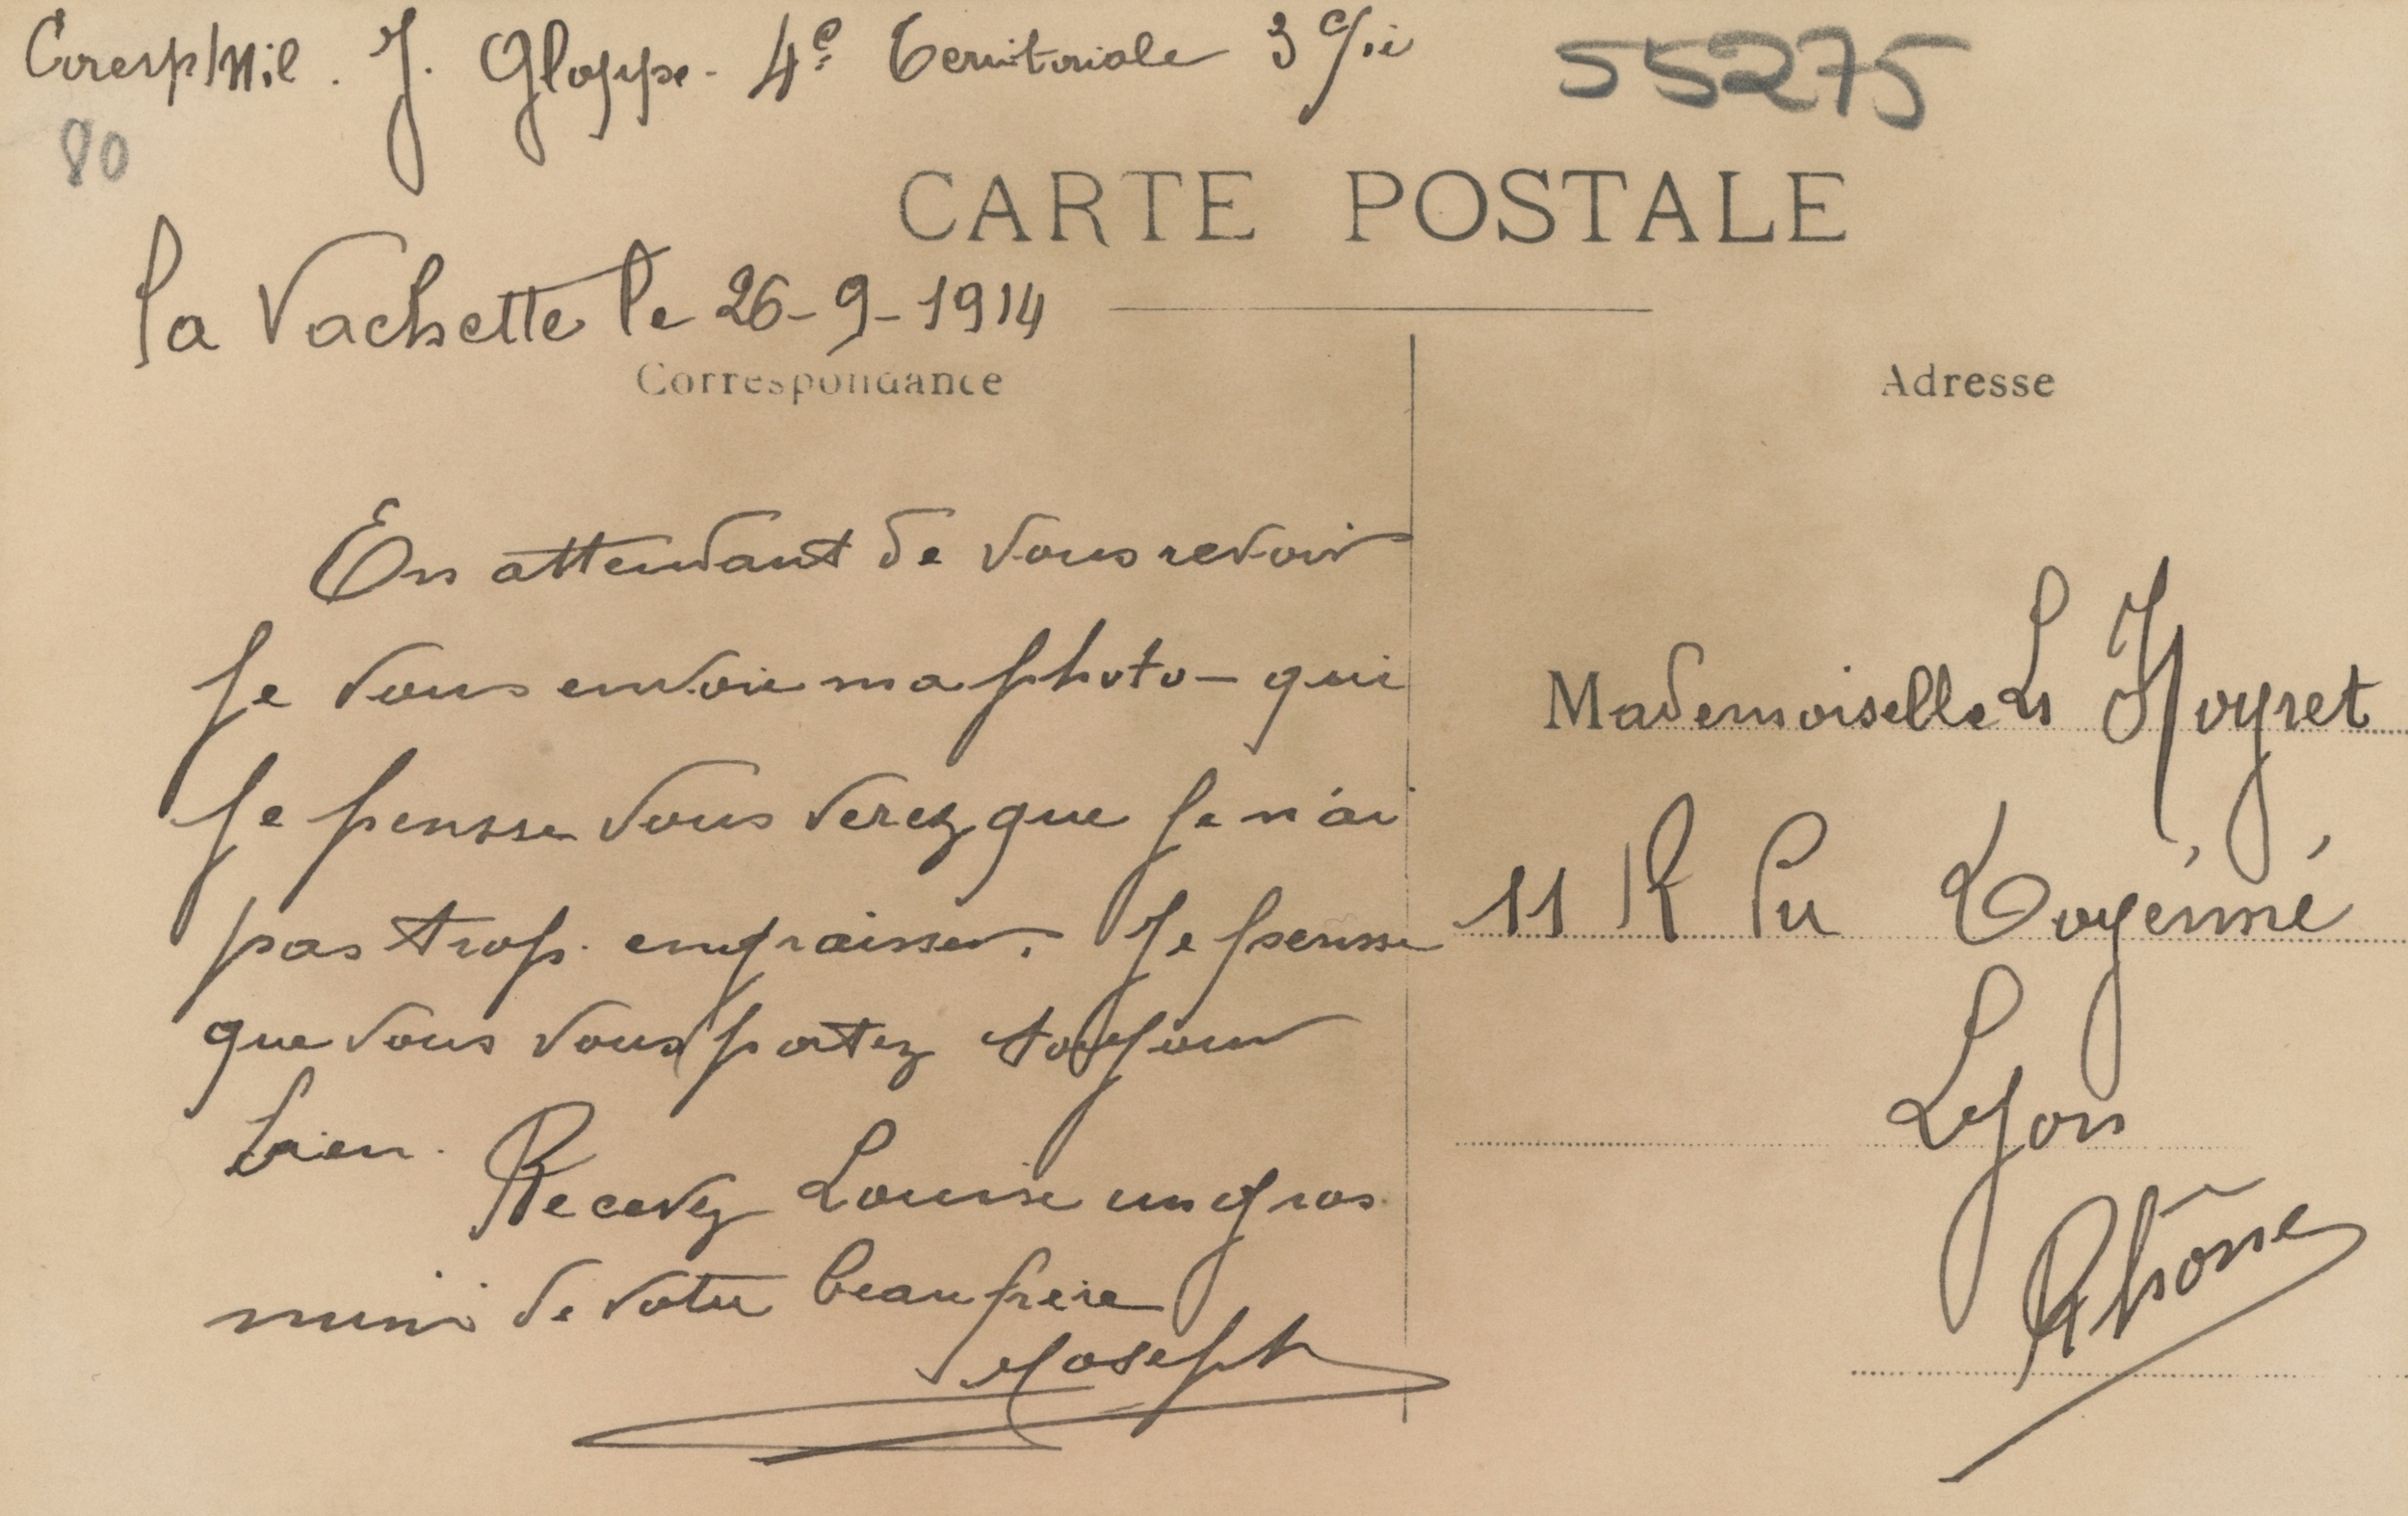 Coresp/Mil. J. Gloppe - 4e Territoriale 3 Cie
55275
80
CARTE POSTALE
la Vachette le 26-9-1914
Correspondance
En attendant de vous revoir
Je vous envoie ma photo - qui
Je pensse vous verez que Je n'ai
pas trop engraisser. Je pensse
que vous vous portez toujour
bien. Recevez Louise un gros
mimi de votre beau frere
Joseph
Adresse
Mademoiselle L
11 R Du Doyénné
Lyon
Rhône